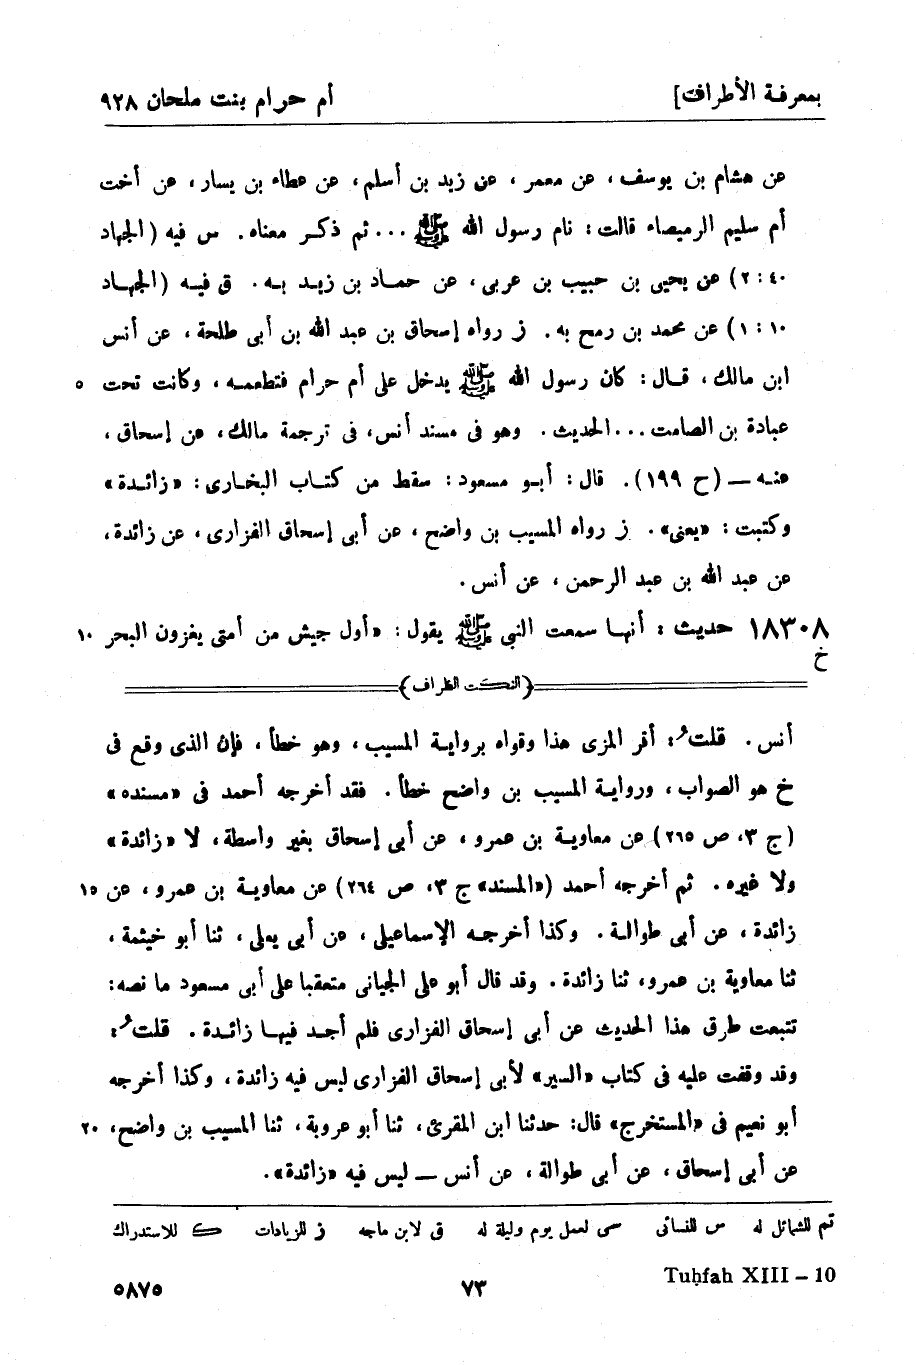 بمعرفة الأطراف]
أم حرام بنت ملحان ٩٢٨
عن هشام بن يوسف، عن معمر، عن زيد بن أسلم، عن عطاء بن يسار، عن أخت
أم سليم الرميصاء قالت: نام رسول الله ﷺ ... ثم ذكر معناه. س فيه (الجهاد
٤٠ : ٢) عن يحيى بن حبيب بن عربى، عن حماد بن زيد به. ق فيه (الجهاد
١٠ : ١) عن محمد بن رمح به. ز رواه إسحاق بن عبد الله بن أبى طلحة، عن أنس
ابن مالك، قال: كان رسول الله ﷺ يدخل على أم حرام فتطعمه، وكانت تحت ٥
عبادة بن الصامت ... الحديث. وهو فى مسند أنس، فى ترجمة مالك، عن إسحاق،
عنه — (ح ١٩٩). قال: أبو مسعود: سقط من كتاب البخارى: «زائدة»
وكتبت: «يعنى». ز رواه المسيب بن واضح، عن أبى إسحاق الفزارى، عن زائدة،
عن عبد الله بن عبد الرحمن، عن أنس.
١٨٣٠٨ حديث: أنها سمعت النبى ﷺ يقول: «أول جيش من أمتى يغزون البحر ١٠
خ
(النكت الظراف)
أنس. قلتُ: أقر المزى هذا وقواه برواية المسيب، وهو خطأ، فإن الذى وقع فى
خ هو الصواب، ورواية المسيب بن واضح خطأ. فقد أخرجه أحمد فى «مسنده»
(ج ٣، ص ٢٦٥) عن معاوية بن عمرو، عن أبى إسحاق بغير واسطة، لا «زائدة»
ولا غيره. ثم أخرجه أحمد («المسند» ج ٣، ص ٢٦٤) عن معاوية بن عمرو، عن ١٥
زائدة، عن أبى طوالة. وكذا أخرجه الإسماعيلى، عن أبى يعلى، ثنا أبو خيثمة،
ثنا معاوية بن عمرو، ثنا زائدة. وقد قال أبو على الجيانى متعقبا على أبى مسعود ما نصه:
تتبعت طرق هذا الحديث عن أبى إسحاق الفزارى فلم أجد فيها زائدة. قلتُ:
وقد وقفت عليه فى كتاب «السير» لأبى إسحاق الفزارى ليس فيه زائدة، وكذا أخرجه
أبو نعيم فى «المستخرج» قال: حدثنا ابن المقرئ، ثنا أبو عروبة، ثنا المسيب بن واضح، ٢٠
عن أبى إسحاق، عن أبى طوالة، عن أنس — ليس فيه «زائدة».
تم للشمائل له س للنسائى سى لعمل يوم وليلة له ق لابن ماجه ز للزيادات ك للاستدراك
Tuḥfah XIII – 10
٧٣
٥٨٧٥